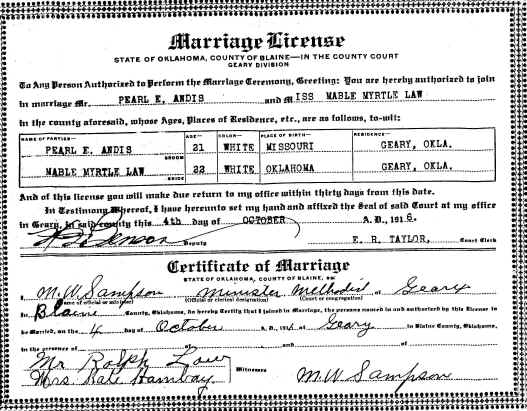 Marriage License
STATE OF OKLAHOMA, COUNTY OF BLAINE—IN THE COUNTY COURT
GEARY DIVISION
To Any Person Authorized to Perform the Marriage Ceremony, Greeting: You are hereby authorized to join
in marriage Mr. PEARL E. ANDIS and MISS MABLE MYRTLE LAW
in the county aforesaid, whose Ages, Places of Residence, etc., are as follows, to-wit:
NAME OF PARTIES— AGE— COLOR— PLACE OF BIRTH— RESIDENCE—
PEARL E. ANDIS 21 WHITE MISSOURI GEARY, OKLA.
GROOM
MABLE MYRTLE LAW 22 WHITE OKLAHOMA GEARY, OKLA.
BRIDE
And of this license you will make due return to my office within thirty days from this date.
In Testimony Whereof, I have hereunto set my hand and affixed the Seal of said Court at my office
in Geary, in said county this 4th day of OCTOBER A. D., 191
Deputy E. R. TAYLOR, Court Clerk
Certificate of Marriage
STATE OF OKLAHOMA, COUNTY OF BLAINE, ss:
I, M. W. Sampson Minister Methodist of Geary
(Name of official or minister) (Official or clerical designation) (Court or congregation)
In Blaine County, Oklahoma, do hereby Certify that I joined in Marriage, the persons named in and authorized by this License to
be Married, on the 4 day of October A. D., 191 at Geary in Blaine County, Oklahoma,
in the presence of of and of
Mr Ralph Law
Witnesses
Mrs. M. W. Sampson